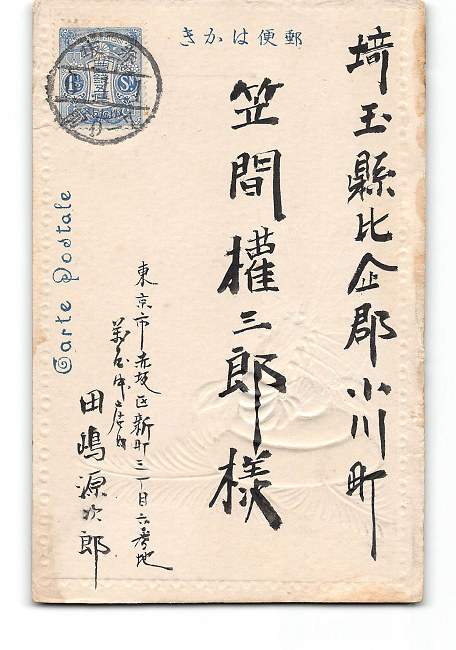 郵便はかき
埼玉縣比企郡小川町
笠間權三郎様
東京市赤坂区新町三丁目六番地
田嶋源次郎
Carte Postale
1½ Sn